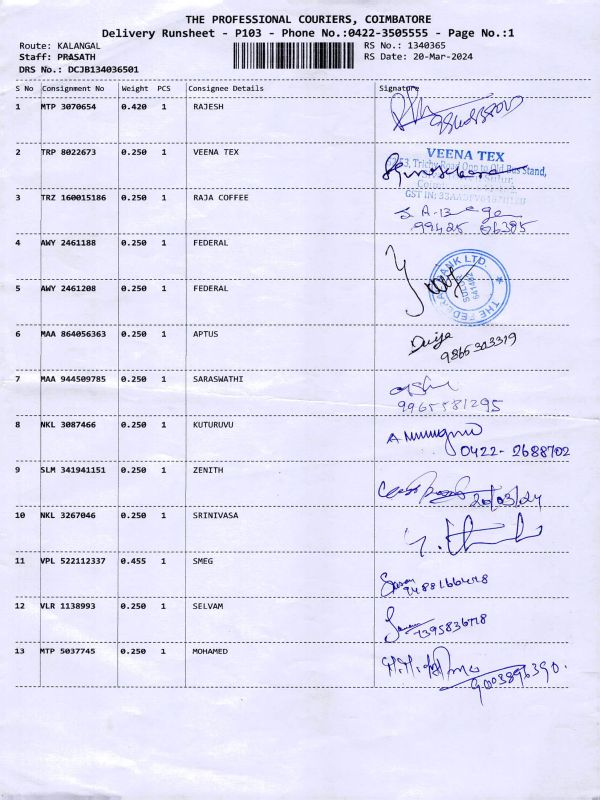 THE PROFESSIONAL COURIERS, COIMBATORE
Delivery Runsheet - P103 - Phone No.:0422-3505555 - Page No.:1
Route: KALANGAL
RS No.: 1340365
Staff: PRASATH
RS Date: 20-Mar-2024
DRS No.: DCJB134036501
S No Consignment No Weight PCS Consignee Details Signature
1 MTP 3070654 0.420 1 RAJESH
2 TRP 8022673 0.250 1 VEENA TEX
VEENA TEX
Trichy Road Opp to Old Bus Stand,
GST IN:
3 TRZ 160015186 0.250 1 RAJA COFFEE
99425 66385
4 AWY 2461188 0.250 1 FEDERAL
THE FEDERAL BANK LTD.
5 AWY 2461208 0.250 1 FEDERAL
6 MAA 864056363 0.250 1 APTUS
9865303319
7 MAA 944509785 0.250 1 SARASWATHI
9965581295
8 NKL 3087466 0.250 1 KUTURUVU
0422-2688702
9 SLM 341941151 0.250 1 ZENITH
20/03/24
10 NKL 3267046 0.250 1 SRINIVASA
11 VPL 522112337 0.455 1 SMEG
12 VLR 1138993 0.250 1 SELVAM
13 MTP 5037745 0.250 1 MOHAMED
9003896390.